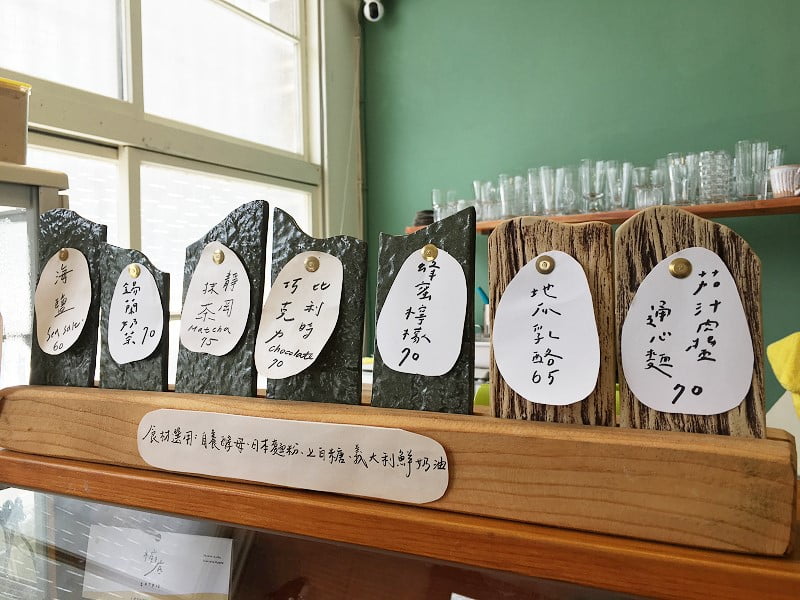 海鹽
Sea salt
60
鍋蘭奶茶 70
靜岡
抹茶
Matcha
75
比利時
巧克力
chocolate
70
蜂蜜檸檬
70
地瓜乳酪
65
茄汁肉醬
通心麵 70
食材選用·自養酵母·日本麵粉·上白糖·義大利鮮奶油